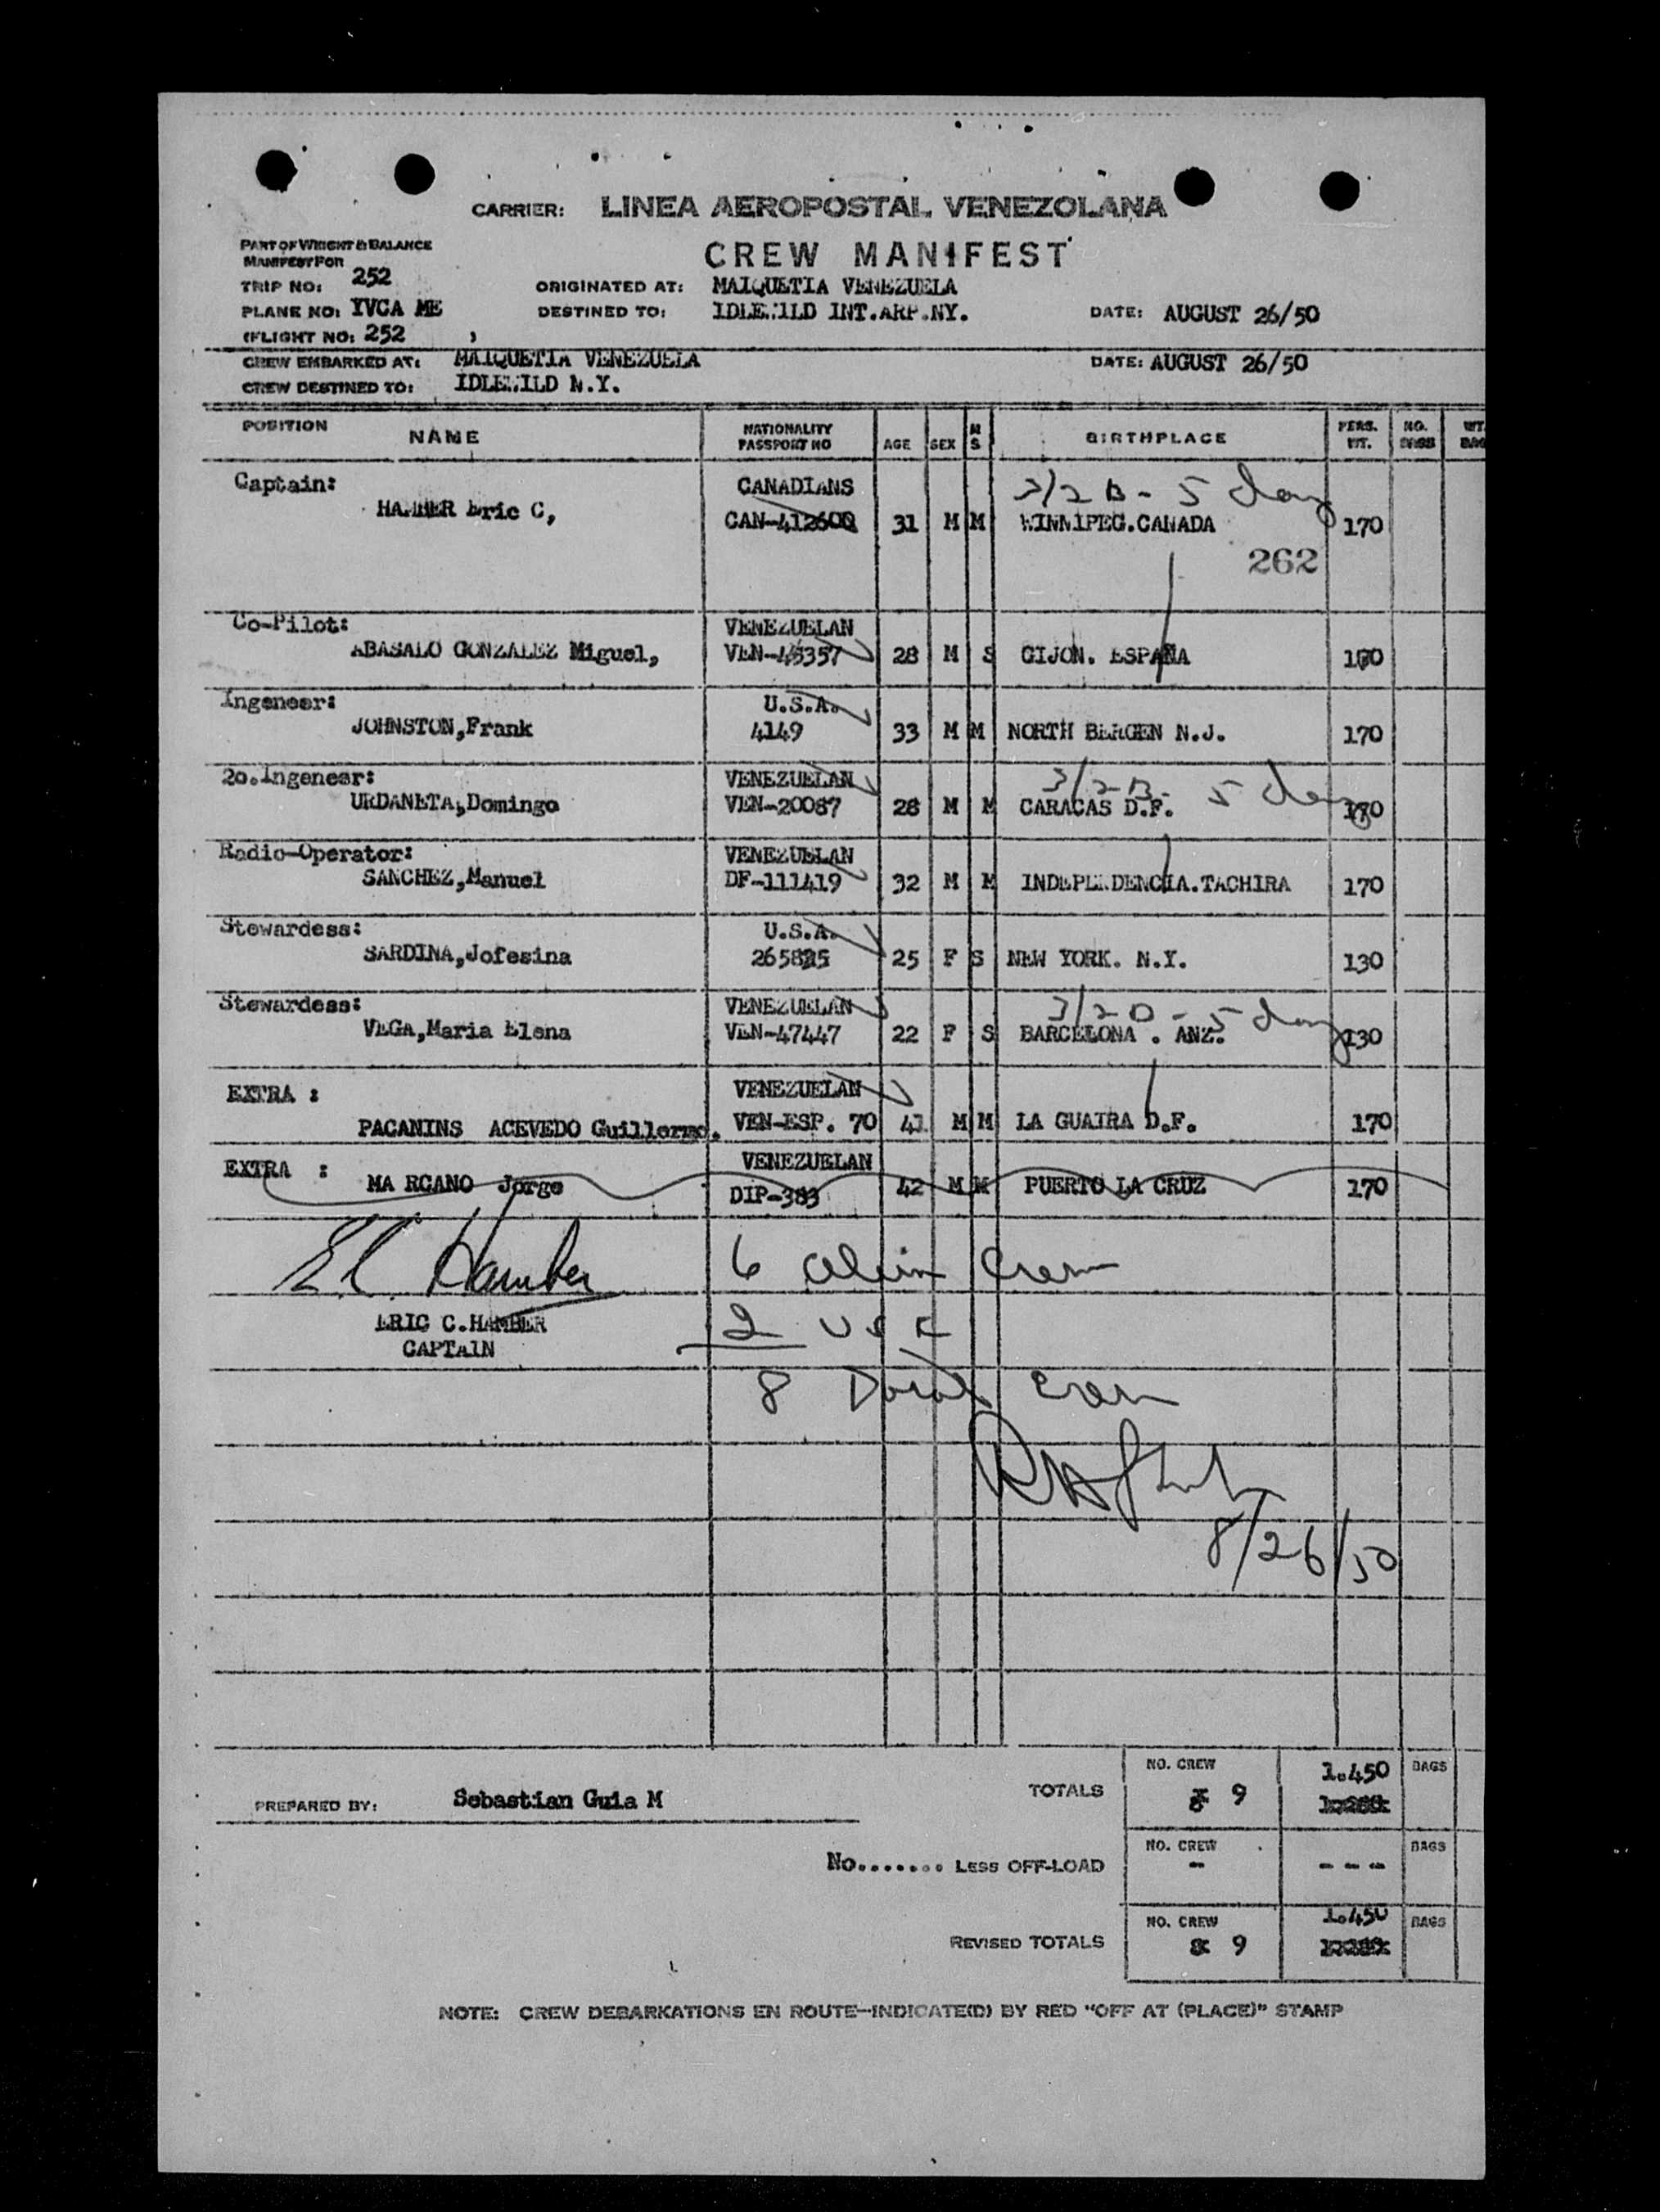 CARRIER: LINEA AEROPOSTAL VENEZOLANA
PART OF WEIGHT & BALANCE
MANIFEST FOR
CREW MANIFEST
TRIP NO: 252 ORIGINATED AT: MAIQUETIA VENEZUELA
PLANE NO: YVCA ME DESTINED TO: IDLEWILD INT.ARP.NY. DATE: AUGUST 26/50
(FLIGHT NO: 252 )
CREW EMBARKED AT: MAIQUETIA VENEZUELA DATE: AUGUST 26/50
CREW DESTINED TO: IDLEWILD N.Y.
POSITION NAME NATIONALITY PASSPORT NO AGE SEX M S BIRTHPLACE PERS. WT. NO. BAGS WT. BAG
Captain: CANADIANS 3/2 B - 5 day
HAMBER Eric C, CAN-412600 31 M M WINNIPEG.CANADA 170
262
Co-Pilot: VENEZUELAN
ABASALO GONZALEZ Miguel, VEN-45357 28 M S GIJON. ESPAÑA
Ingeneer: U.S.A.
JOHNSTON,Frank 4149 33 M M NORTH BERGEN N.J. 170
2o.Ingeneer: VENEZUELAN 3/2 B - 5 day
URDANETA,Domingo VEN-20087 28 M M CARACAS D.F. 170
Radio-Operator: VENEZUELAN
SANCHEZ,Manuel DF-111419 32 M M INDEPENDENCIA.TACHIRA 170
Stewardess: U.S.A.
SARDINA,Jofesina 25 F S NEW YORK. N.Y. 130
Stewardess: VENEZUELAN 3/2 B - 5 day
VEGA,Maria Elena VEN-47447 22 F S BARCELONA . ANZ. 130
EXTRA : VENEZUELAN
PACANINS ACEVEDO Guillermo. VEN-ESP. 70 41 M M LA GUAIRA D.F. 170
EXTRA : VENEZUELAN
MA RCANO Jorge DIP-383 42 M M PUERTO LA CRUZ 170
E.C. Hamber 6 alien Crew
ERIC C.HAMBER 2 USC
CAPTAIN
8 Total Crew
8/26/50
NO. CREW 1.450 BAGS
TOTALS 9
PREPARED BY: Sebastian Guia M
NO. CREW BAGS
No....... LESS OFF-LOAD - - - -
NO. CREW 1.450 BAGS
REVISED TOTALS 9
NOTE: CREW DEBARKATIONS EN ROUTE—INDICATE(D) BY RED "OFF AT (PLACE)" STAMP